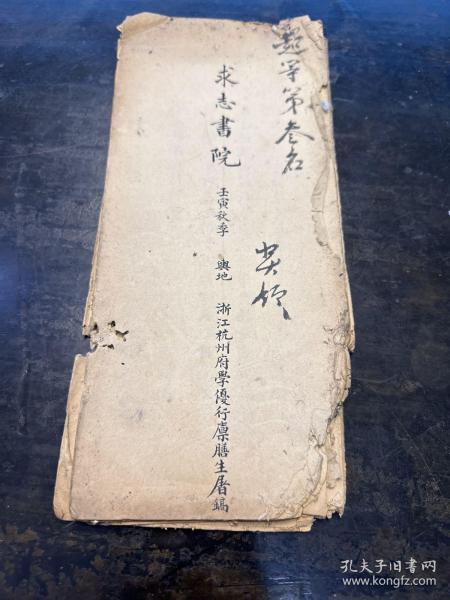 超等第叁名
奖领
求志書院 壬寅秋季 輿地 浙江杭州府學優行廪膳生屠鏞
孔夫子旧书网
www.kongfz.com